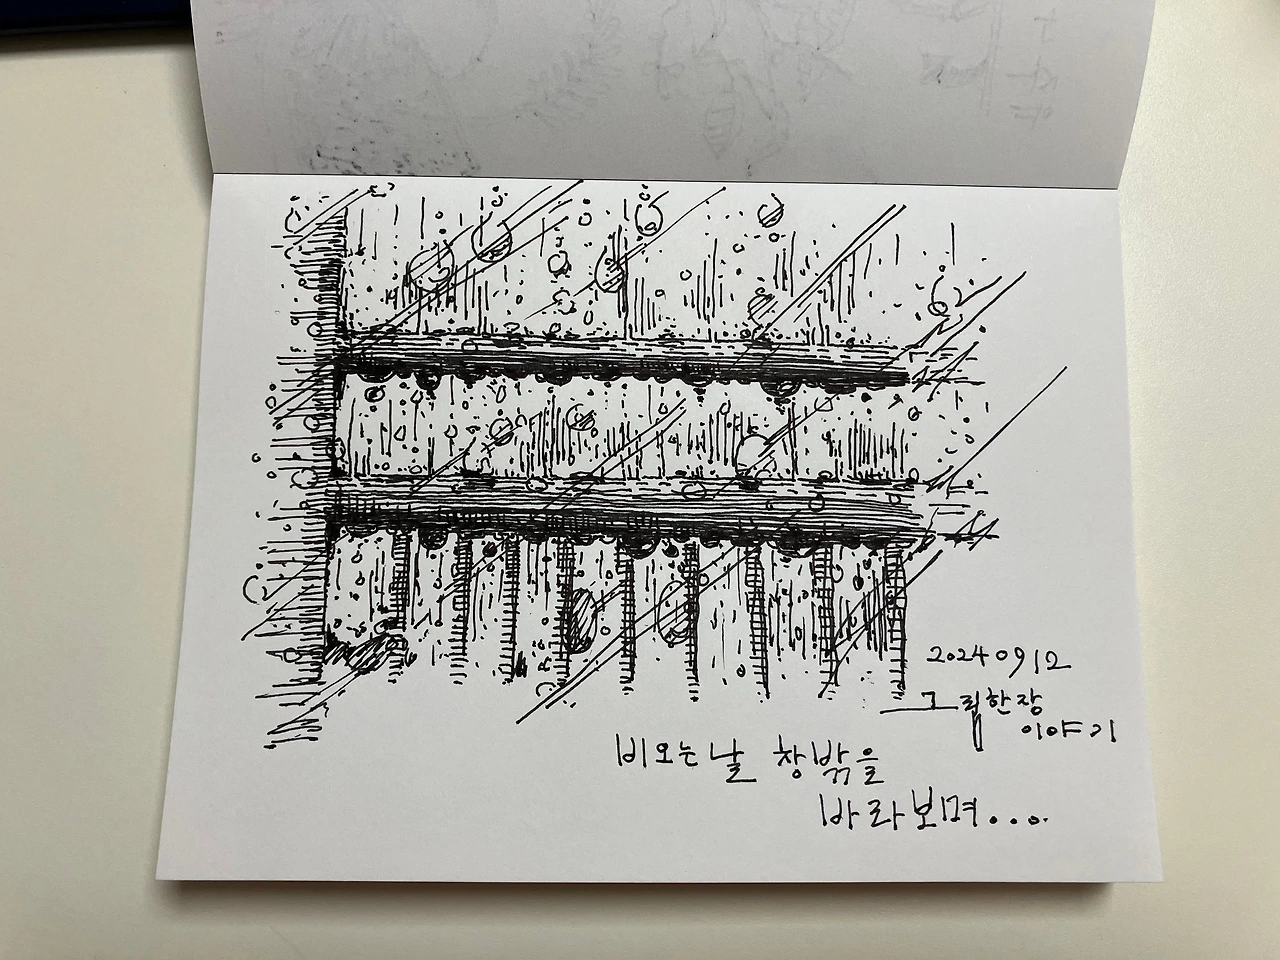 20240912
그림한장
이야기
비오는날 창밖을
바라보며...